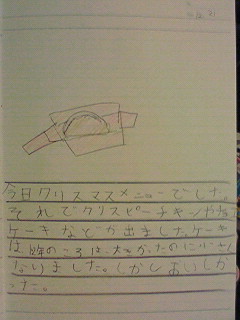 今日クリスマスメニューでした。
それでクリスピーチキンやね
ケーキなどが出ました。ケーキ
は昨のころは大きかったのに小さく
ないました。しかしおいしか
った。